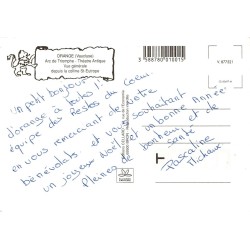 ORANGE (Vaucluse)
Arc de Triomphe - Théatre Antique
Vue générale
depuis la colline St Eutrope
3 588780 010015
Un petit bonjour
d'orange à toute l'
équipe des Restos du Coeur.
en vous remerciant de votre
bénévolat et vous souhaitant
un joyeux Noël et un bonne Année
Pleines de bonheur et santé
Pascaline